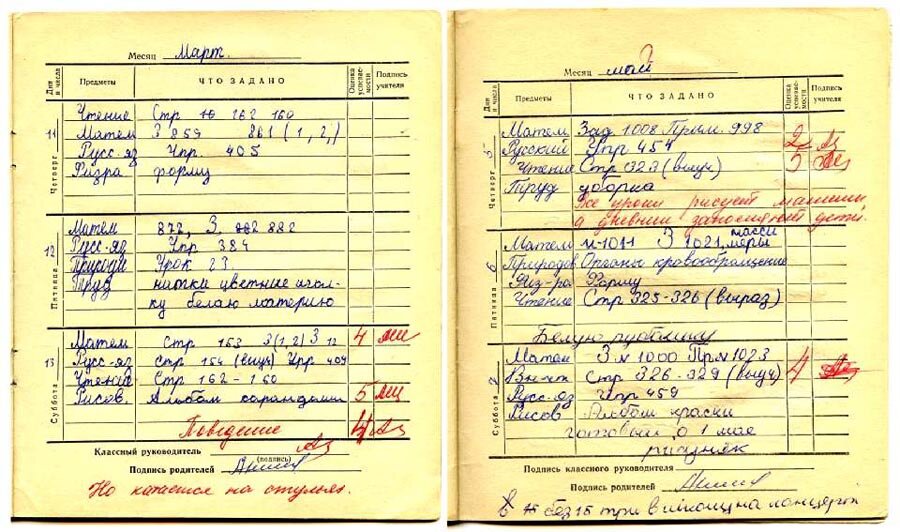 Месяц Март.
Дни и числа Предметы ЧТО ЗАДАНО Оценка успеваемости Подпись учителя
11 Четверг
Чтение Стр 162 160
Матем З 859 861 (1, 2,)
Русс-яз Упр. 405
Физра форму
12 Пятница
Матем 872, З. 882
Русс-яз Упр 384
Природ Урок 23
Труд нитки цветные иголку белаю материю
13 Суббота
Матем Стр 153 З(1,2) З 12 4
Русс-яз Стр 154 (выуч) Упр 409
Чтение Стр 162-160
Рисов. Альбом карандаши 5
Поведение 4
Классный руководитель
(подпись)
Подпись родителей
Но катается на стульях.
Месяц май
Дни и числа Предметы ЧТО ЗАДАНО Оценка успеваемости Подпись учителя
5 Четверг
Матем Зад 1008 Прим. 998
Русский Упр 454 2
Чтение Стр 323 (выуч) 5
Труд уборка
Все уроки рисует машины
а дневник заполняют дети.
6 Пятница
массы
Матем N-1011 З 1021, меры
Природов Органы кровообращение
Физ-ра Форму
Чтение Стр 325-326 (выраз)
Белую рубашку
7 Суббота
Матем З N 1000 Пр N 1023
Вн-чт Стр 326-329 (выуч) 4
Русс-яз Упр 459
Рисов Альбом краски
готовый о 1 мае
рисунок
Подпись классного руководителя
Подпись родителей
В без 15 три в на концерт